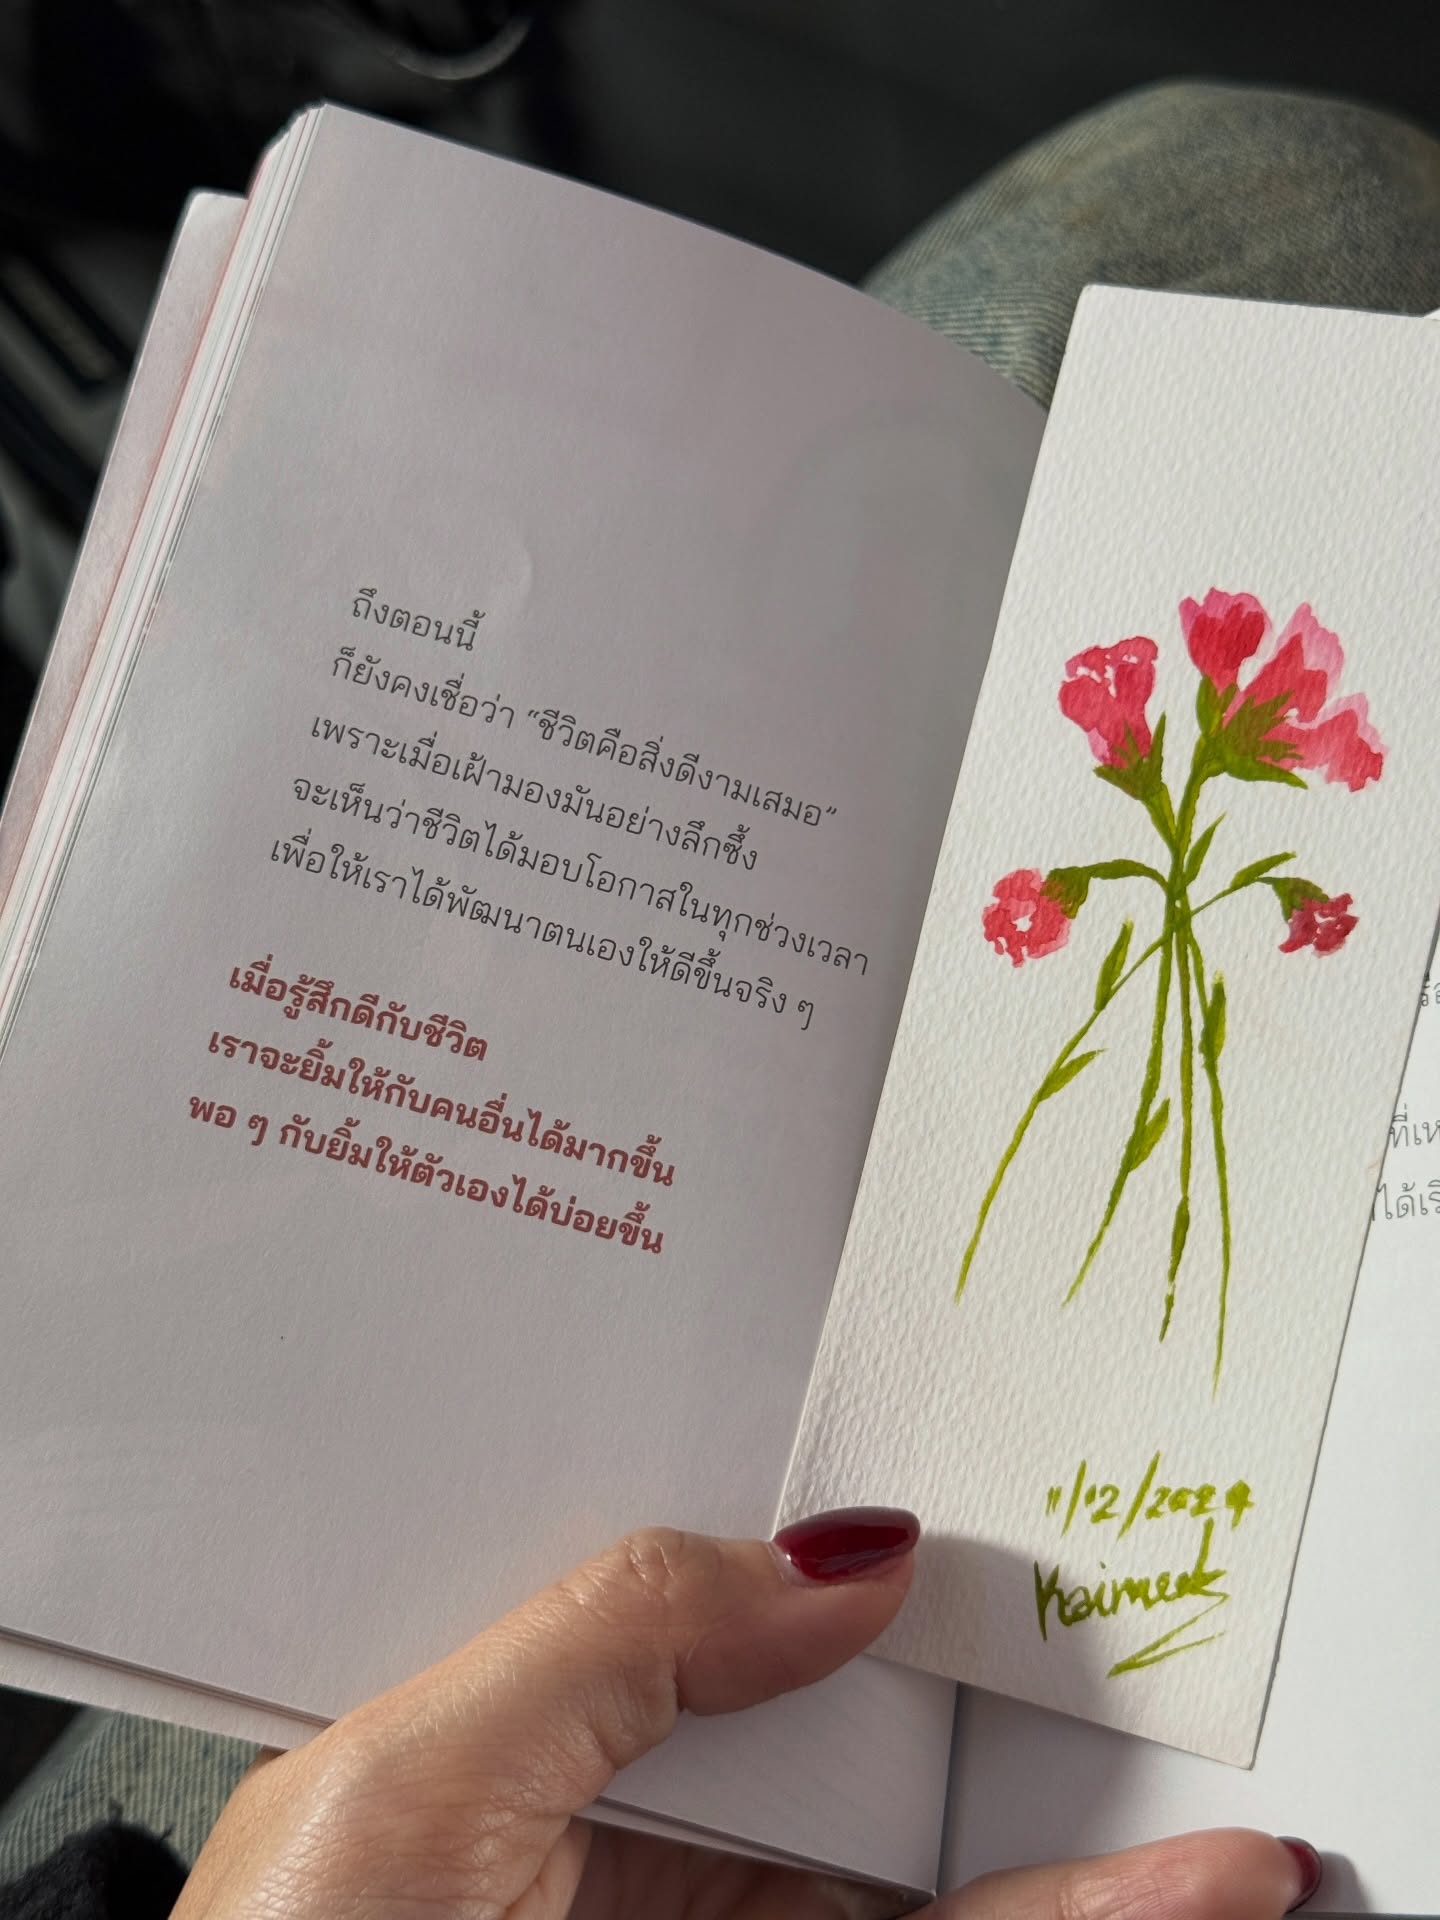 ถึงตอนนี้
ก็ยังคงเชื่อว่า “ชีวิตคือสิ่งดีงามเสมอ”
เพราะเมื่อเฝ้ามองมันอย่างลึกซึ้ง
จะเห็นว่าชีวิตได้มอบโอกาสในทุกช่วงเวลา
เพื่อให้เราได้พัฒนาตนเองให้ดีขึ้นจริง ๆ
เมื่อรู้สึกดีกับชีวิต
เราจะยิ้มให้กับคนอื่นได้มากขึ้น
พอ ๆ กับยิ้มให้ตัวเองได้บ่อยขึ้น
11/12/2024